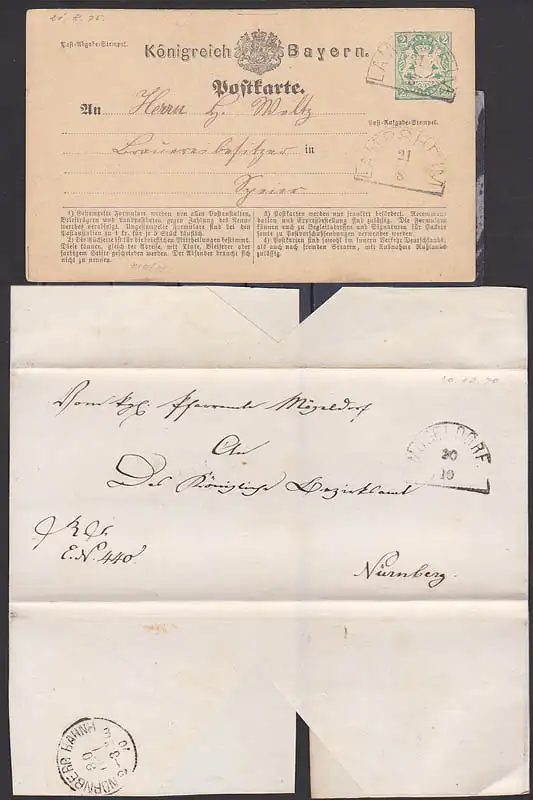 21. 8. 75.
Post-Abgabe-Stempel.
Königreich Bayern.
Postkarte.
2 2
LAMBSHEIM
21
8
An Herrn H. Weltz
Post-Aufgabe-Stempel.
Brauereibesitzer in
LAMBSHEIM
21
8
Speier
1) Gestempelte Formulare werden von allen Postanstalten,
Briefträgern und Landpostboten gegen Zahlung des Nenn-
werthes verkauft. Ungestempelte Formulare sind bei den
Postanstalten zu 1 kr. für je 5 Stück käuflich.
2) Die Rückseite ist für die brieflichen Mittheilungen bestimmt.
Diese können, gleich der Adresse, mit Tinte, Bleifeder oder
farbigem Stifte geschrieben werden. Der Absender braucht sich
nicht zu nennen.
3) Postkarten werden nur frankirt befördert. Recomman-
dation und Expreßbestellung sind zulässig. Die Formulare
können auch zu Begleitadressen und Signaturen für Packete
sowie zu Postvorschußsendungen verwendet werden.
4) Postkarten sind sowohl im innern Verkehr Deutschlands,
als auch nach fremden Staaten, mit Ausnahme Rußlands
zulässig.
Vom kgl. Pfarramte Mögeldorf
An
MÖGELDORF
20
10
Das Königliche Bezirksamt
E.N. 440.
Nürnberg.
NÜRNBERG BAHNH